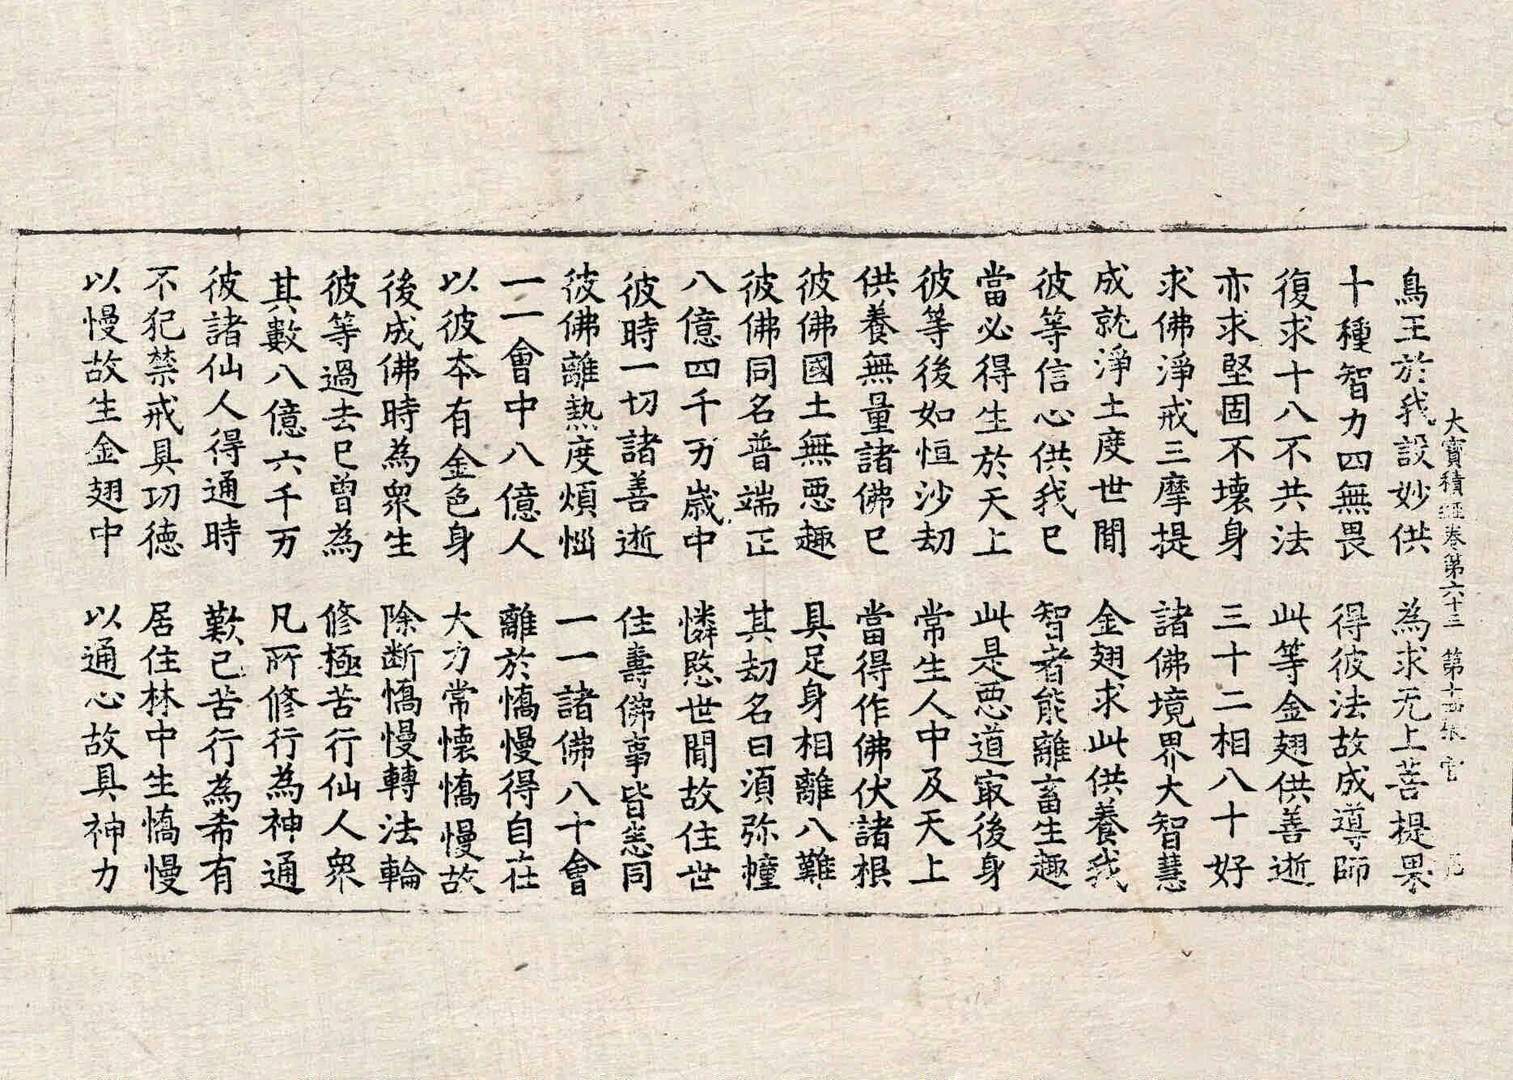 大寳積經卷第六十三 第十 張 官
鳥王於我設妙供 為求无上菩提果
十種智力四無畏 得彼法故成導師
復求十八不共法 此等金翅供善逝
亦求堅固不壞身 三十二相八十好
求佛淨戒三摩提 諸佛境界大智慧
成就淨土度世間 金翅求此供養我
彼等信心供我已 智者能離畜生趣
當必得生於天上 此是惡道㝡後身
彼等後如恒沙劫 常生人中及天上
供養無量諸佛已 當得作佛伏諸根
彼佛國土無惡趣 具足身相離八難
彼佛同名普端正 其劫名曰須弥幢
八億四千万歲中 憐愍世間故住世
彼時一切諸善逝 住壽佛事皆悉同
彼佛離熱度煩惱 一一諸佛八十會
一一會中八億人 離於憍慢得自在
以彼本有金色身 大力常懷憍慢故
後成佛時為衆生 除断憍慢轉法輪
彼等過去已曾為 修極苦行仙人衆
其數八億六千万 凡所修行為神通
彼諸仙人得通時 歎己苦行為希有
不犯禁戒具功德 居住林中生憍慢
以慢故生金翅中 以通心故具神力